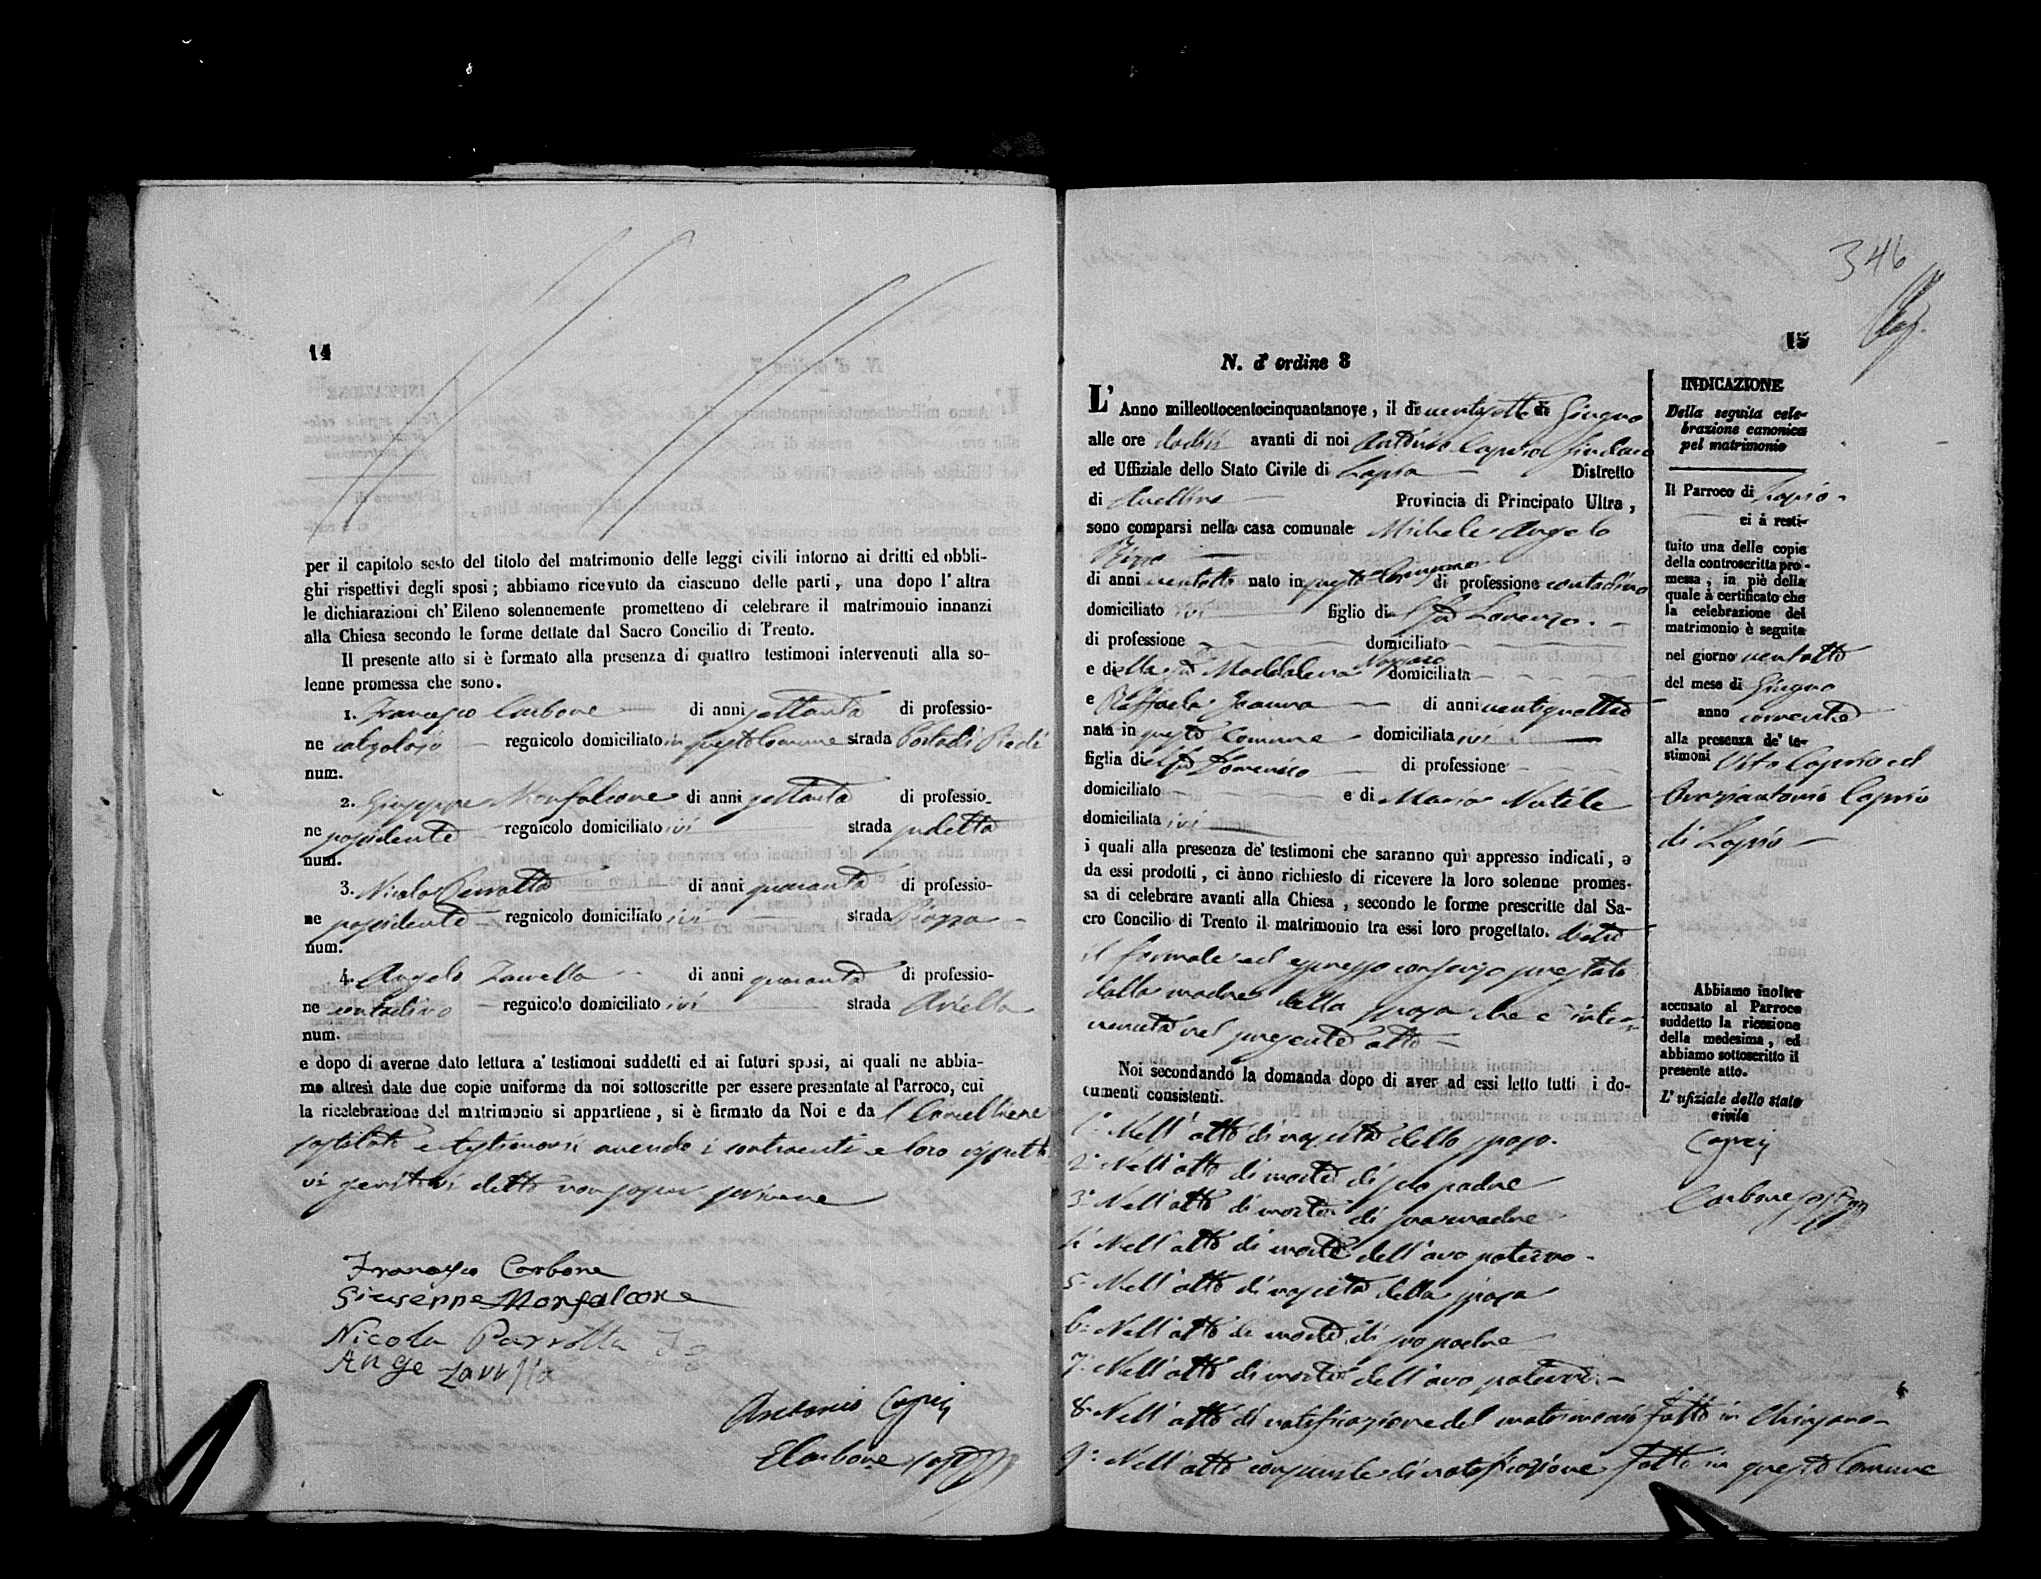 14
per il capitolo sesto del titolo del matrimonio delle leggi civili intorno ai dritti ed obbli-
ghi rispettivi degli sposi; abbiamo ricevuto da ciascuno delle parti, una dopo l'altra
le dichiarazioni ch'Eileno solennemente promettono di celebrare il matrimonio innanzi
alla Chiesa secondo le forme dettate dal Sacro Concilio di Trento.
Il presente atto si è formato alla presenza di quattro testimoni intervenuti alla so-
lenne promessa che sono.
1. Francesco Carbone di anni settanta di professio-
ne calzolajo regnicolo domiciliato in questo Comune strada Porta di Piedi
num.
2. Giuseppe Monfalcone di anni settanta di professio-
ne possidente regnicolo domiciliato ivi strada sudetta
num.
3. Nicola Parrotta di anni quaranta di professio-
ne possidente regnicolo domiciliato ivi strada Piazza
num.
4. Angelo Zarrella di anni quaranta di professio-
ne contadino regnicolo domiciliato ivi strada Ariella
num.
e dopo di averne dato lettura a' testimoni suddetti ed ai futuri sposi, ai quali ne abbia-
mo altresì date due copie uniforme da noi sottoscritte per essere presentate al Parroco, cui
la ricelebrazione del matrimonio si appartiene, si è firmato da Noi e da l Cancelliere
sostituto e testimonii avendo i contraenti e loro rispetti
vi genitori detto non saper scrivere
Francesco Carbone
Giuseppe Monfalcone
Nicola Parrotta
Ange Zarrella
Antonio Caprio
Carbone sost
346
15
N. d' ordine 8
L' Anno milleottocentocinquantanove, il dì ventisette di Giugno
alle ore dodici avanti di noi Antonio Caprio Sindaco
ed Uffiziale dello Stato Civile di Lapio Distretto
di Avellino Provincia di Principato Ultra,
sono comparsi nella casa comunale Michele Angelo
di anni ventotto nato in questo Comune di professione contadino
domiciliato ivi figlio di fu Lorenzo
di professione domiciliato
e di ella fu Maddalena domiciliata
e Raffaela di anni ventiquattro
nata in questo Comune domiciliata ivi
figlia di fu Domenico di professione
domiciliato e di Maria Nutile
domiciliata ivi
i quali alla presenza de' testimoni che saranno qui appresso indicati, e
da essi prodotti, ci ànno richiesto di ricevere la loro solenne promes-
sa di celebrare avanti alla Chiesa, secondo le forme prescritte dal Sa-
cro Concilio di Trento il matrimonio tra essi loro progettato. dietro
il formale ed espresso consenso prestato
dalla madre della sposa che è inter-
venuta nel presente atto
Noi secondando la domanda dopo di aver ad essi letto tutti i do-
cumenti consistenti.
1° Nell'atto di nascita dello sposo.
2° Nell'atto di morte di suo padre
3° Nell'atto di morte di sua madre
4° Nell'atto di morte dell'avo paterno.
5° Nell'atto di nascita della sposa
6° Nell'atto di morte di suo padre
7° Nell'atto di morte dell'avo paterno.
8° Nell'atto di notificazione del matrimonio fatto in
9° Nell'atto consimile di notificazione fatto in questo Comune
INDICAZIONE
Della seguita cele-
brazione canonica
pel matrimonio
Il Parroco di Lapio
ci à resti-
tuito una delle copie
della controscritta pro-
messa, in piè della
quale à certificato che
la celebrazione del
matrimonio è seguita
nel giorno ventotto
del mese di Giugno
anno corrente
alla presenza de' te-
stimoni Vito Caprio ed
Graziantonio Caprio
di Lapio
Abbiamo inoltre
accusato al Parroco
suddetto la ricezione
della medesima, ed
abbiamo sottoscritto il
presente atto.
L'ufiziale dello stato
civile
Caprio
Carbone sost